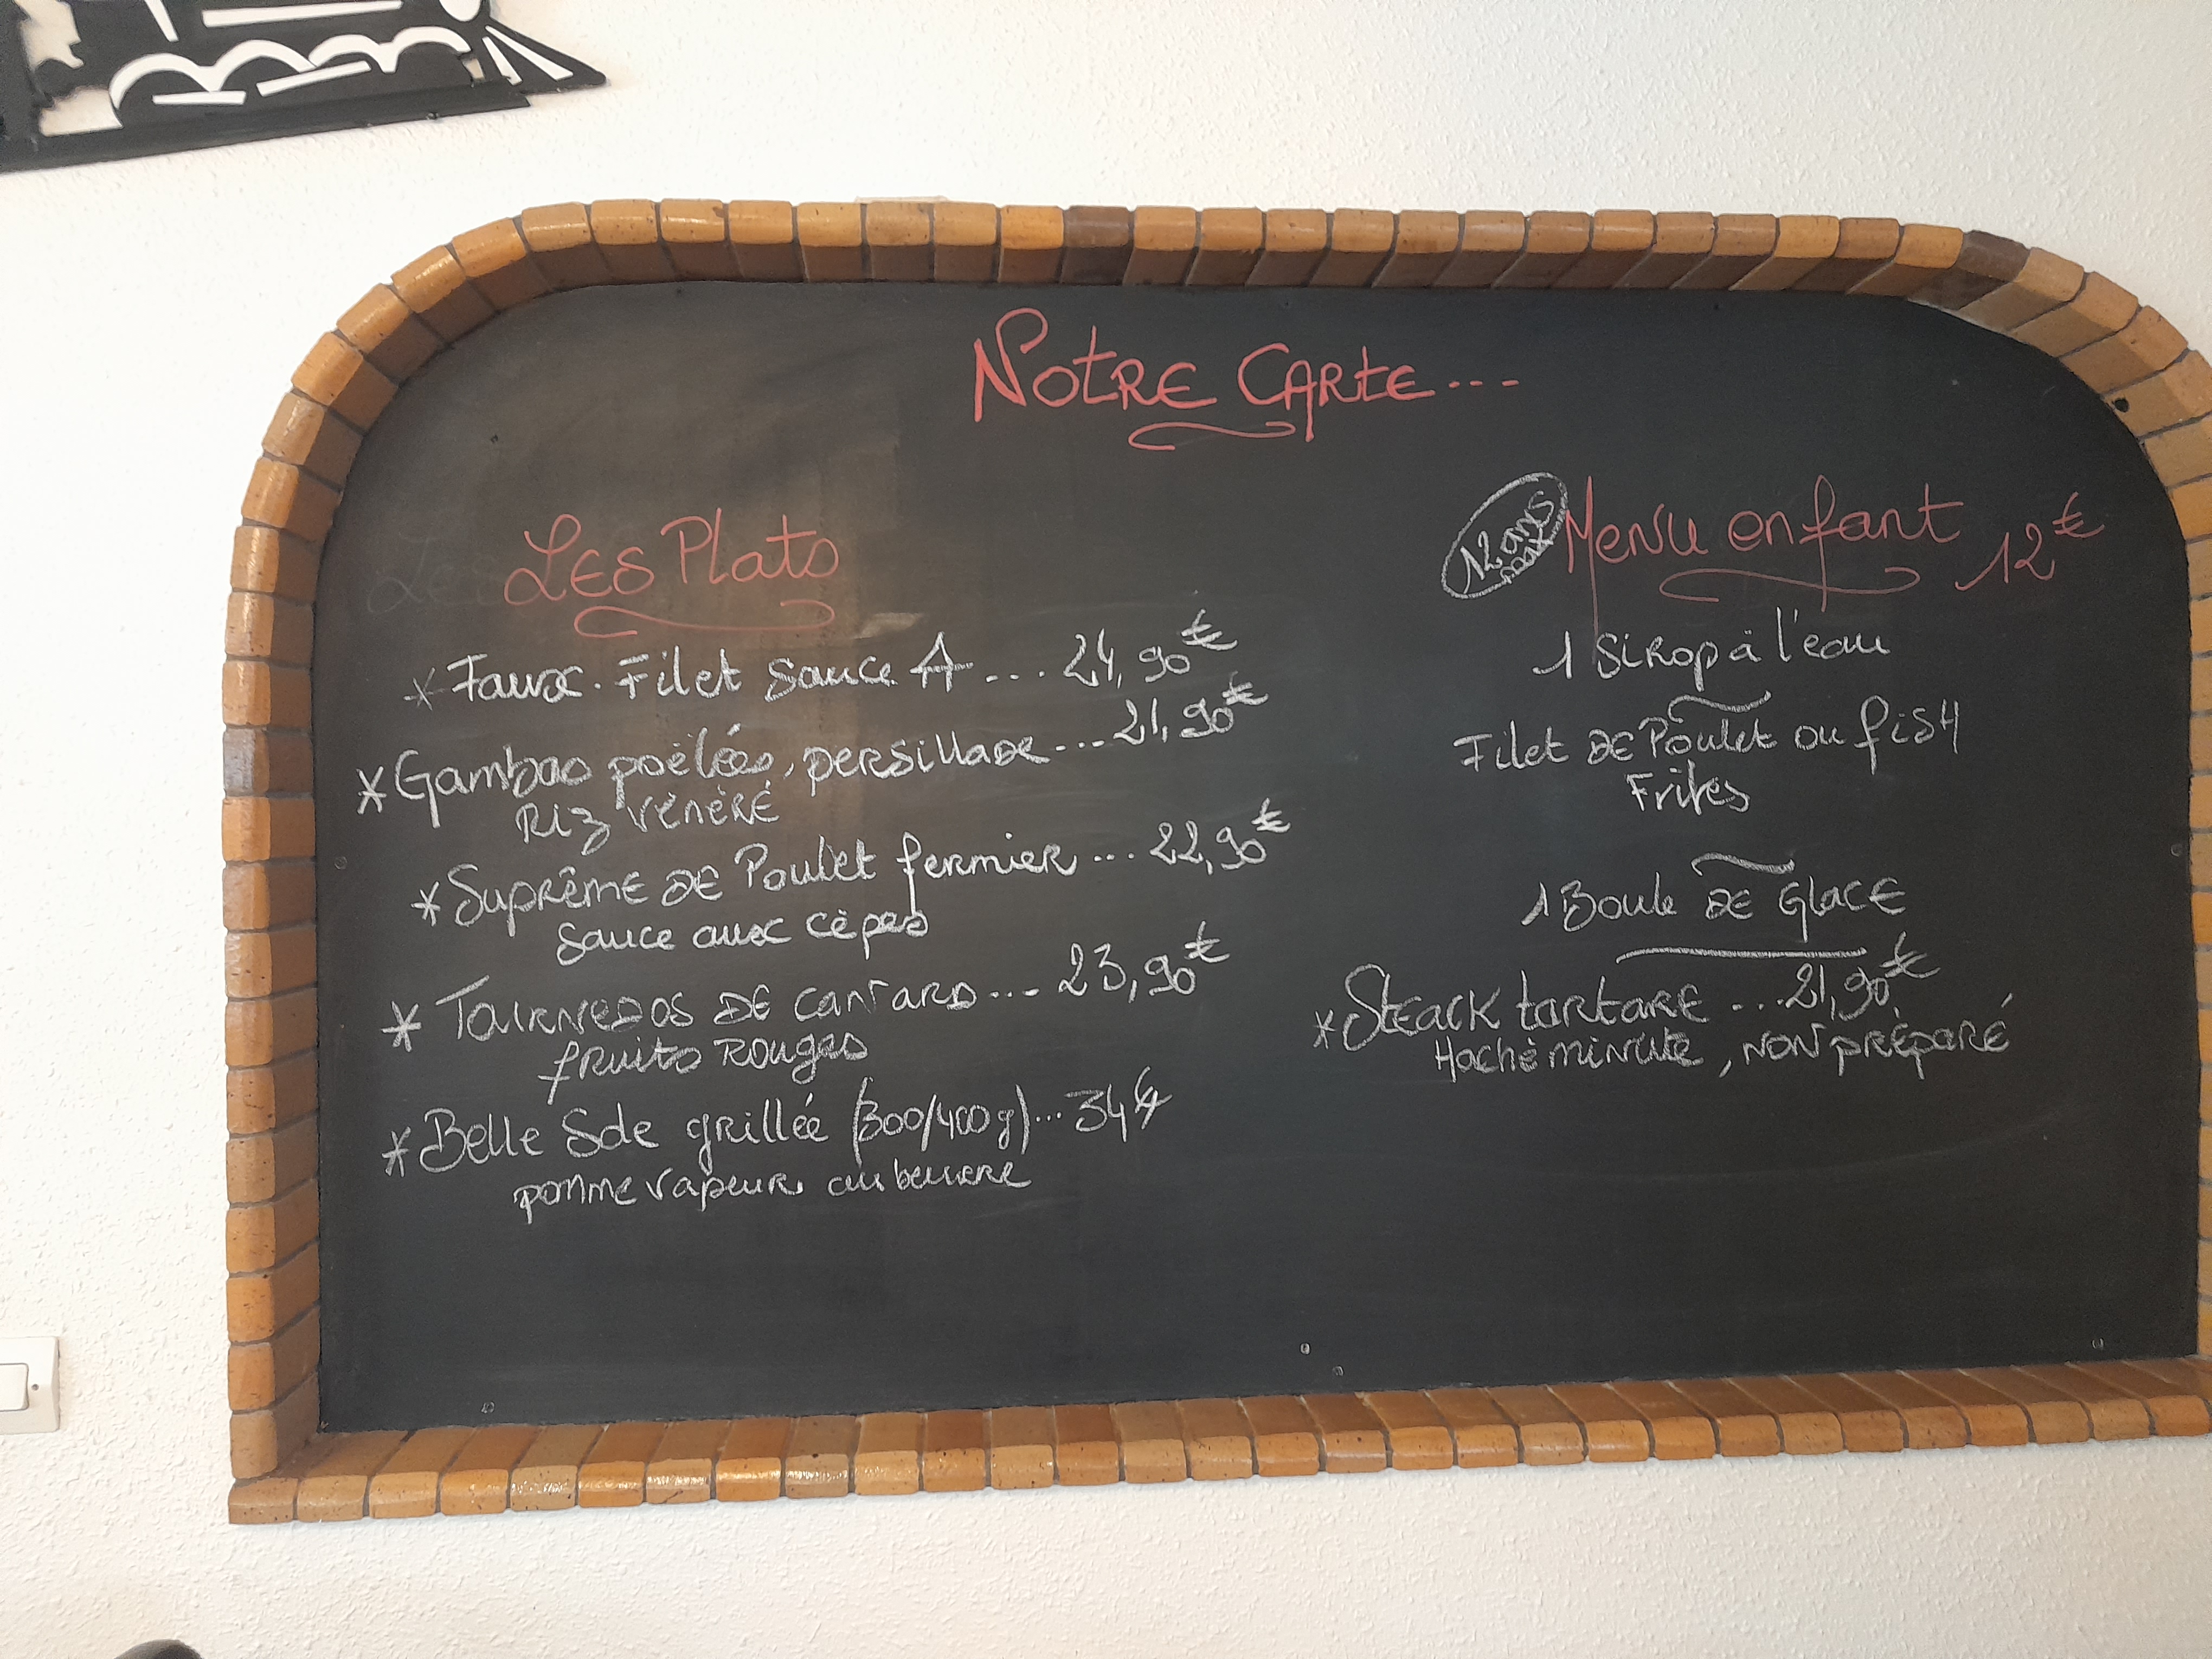 Notre Carte...
Les Plats
* Faux. Filet sauce A ... 24,90€
* Gambas poëlées, persillade ... 21,90€
Riz vénéré
* Suprême de Poulet fermier ... 22,90€
sauce aux cèpes
* Tournedos de canard ... 23,90€
fruits rouges
* Belle Sole grillée (300/400g) ... 34€
pomme vapeur au beurre
12 ans max
Menu enfant 12€
1 Sirop à l'eau
Filet de Poulet ou fish
Frites
1 Boule de Glace
* Steack tartare ... 21,90€
Haché minute, non préparé